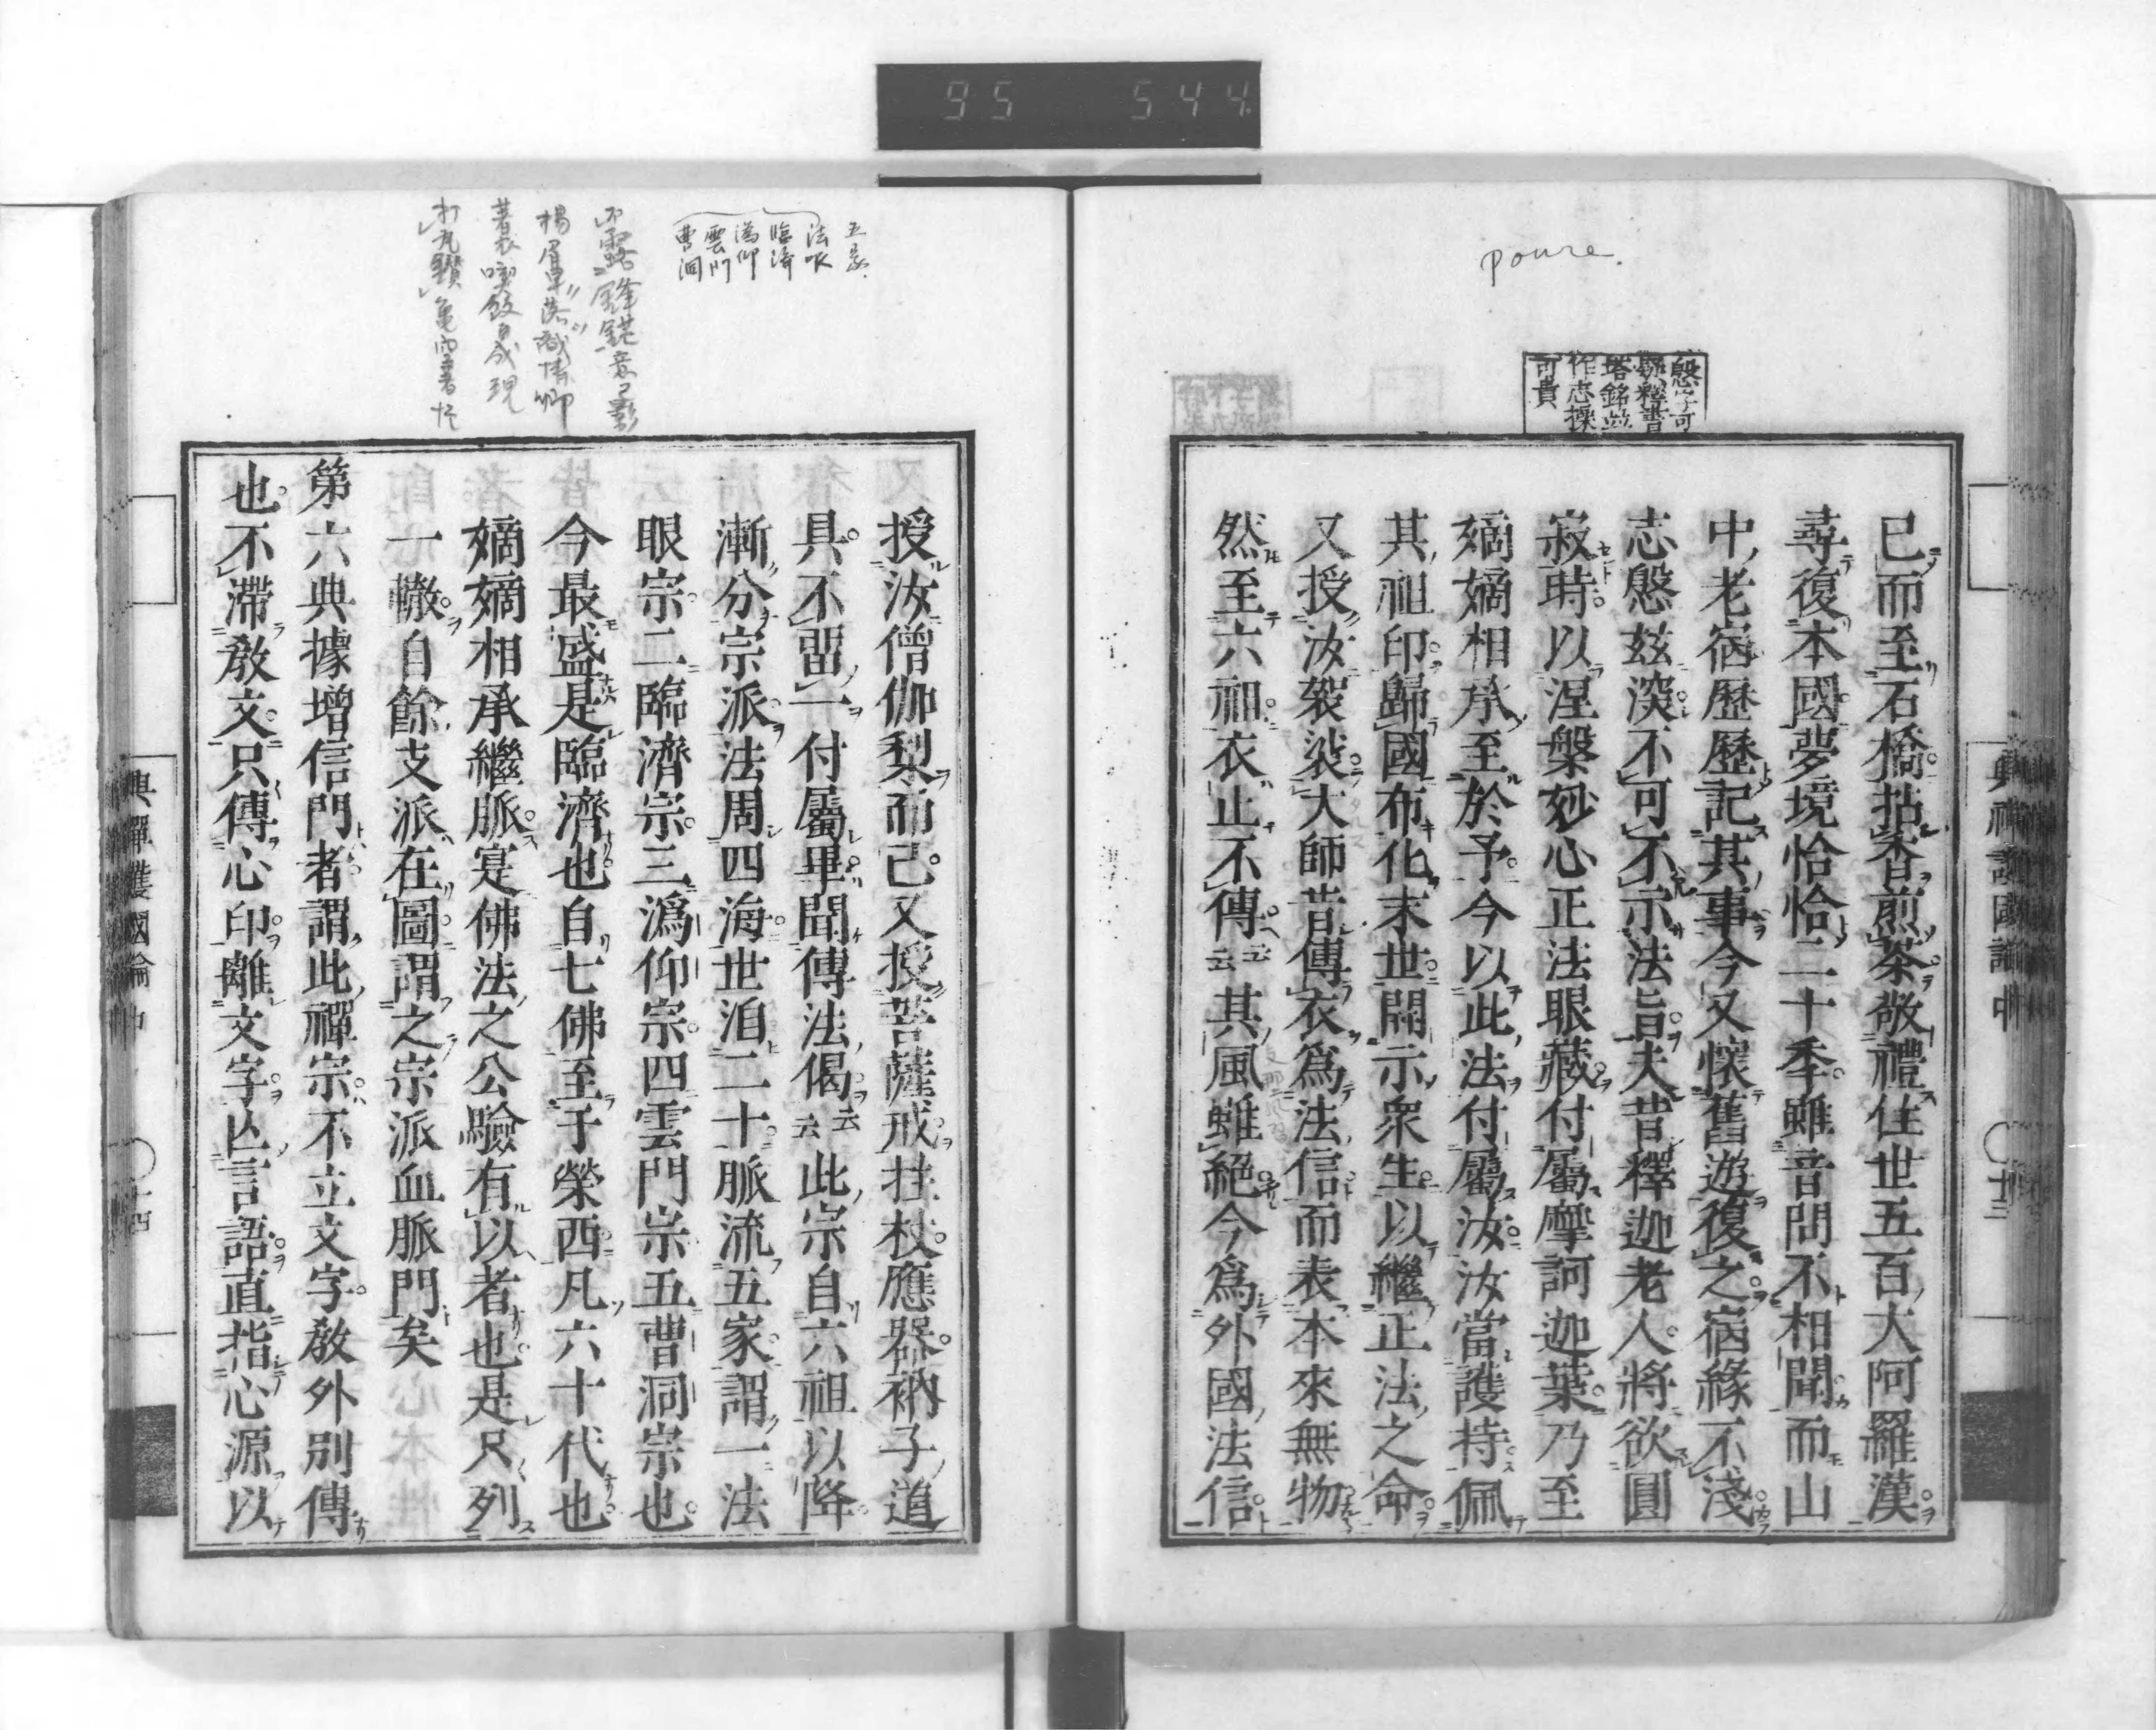 95 544
慇字可
塔銘並
作志操
可貴
已而至石橋拈香煎茶敬禮住世五百大阿羅漢
尋復本國夢境恰恰二十季雖音問不相聞而山
中老宿歷歷記其事今又懷舊遊復之宿緣不淺
志慇玆深不可不示法旨夫昔釋迦老人將欲圓
寂時以涅槃妙心正法眼藏付屬摩訶迦葉乃至
嫡嫡相承至於予今以此法付屬汝汝當護持佩
其祖印歸國布化末世開示衆生以繼正法之命
又授汝袈裟大師昔傳衣爲法信而表本來無物
然至六祖衣止不傳云云其風雖絕今爲外國法信
興禪護國論中
十三
五家
法眼
臨濟
潙仰
雲門
曹洞
授汝僧伽梨而已又授菩薩戒拄杖應器衲子道
具不留一付屬畢聞傳法偈云云此宗自六祖以降
漸分宗派法周四海世洎二十脈流五家謂一法
眼宗二臨濟宗三潙仰宗四雲門宗五曹洞宗也
今最盛是臨濟也自七佛至于榮西凡六十代也
嫡嫡相承繼脈寔佛法之公驗有以者也是只列
一轍自餘支派在圖謂之宗派血脈門矣
第六典據增信門者謂此禪宗不立文字教外別傳
也不滯教文只傳心印離文字亡言語直指心源以
興禪護國論中
十四